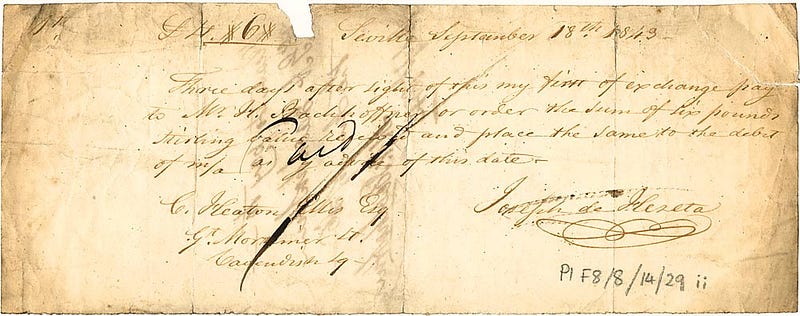 £ St. #6# Seville September 18th 1843
Three days after sight of this my first of exchange pay
to Mr. H. Bachhoffner or order the sum of six pounds
stirling value received and place the same to the debit
of m/a as advice of this date
Paid
C. Heaton Ellis Esq
Gt. Mortimer St.
Cavendish Sq
Joseph de Hezeta
Pl F8/8/14/29 ii